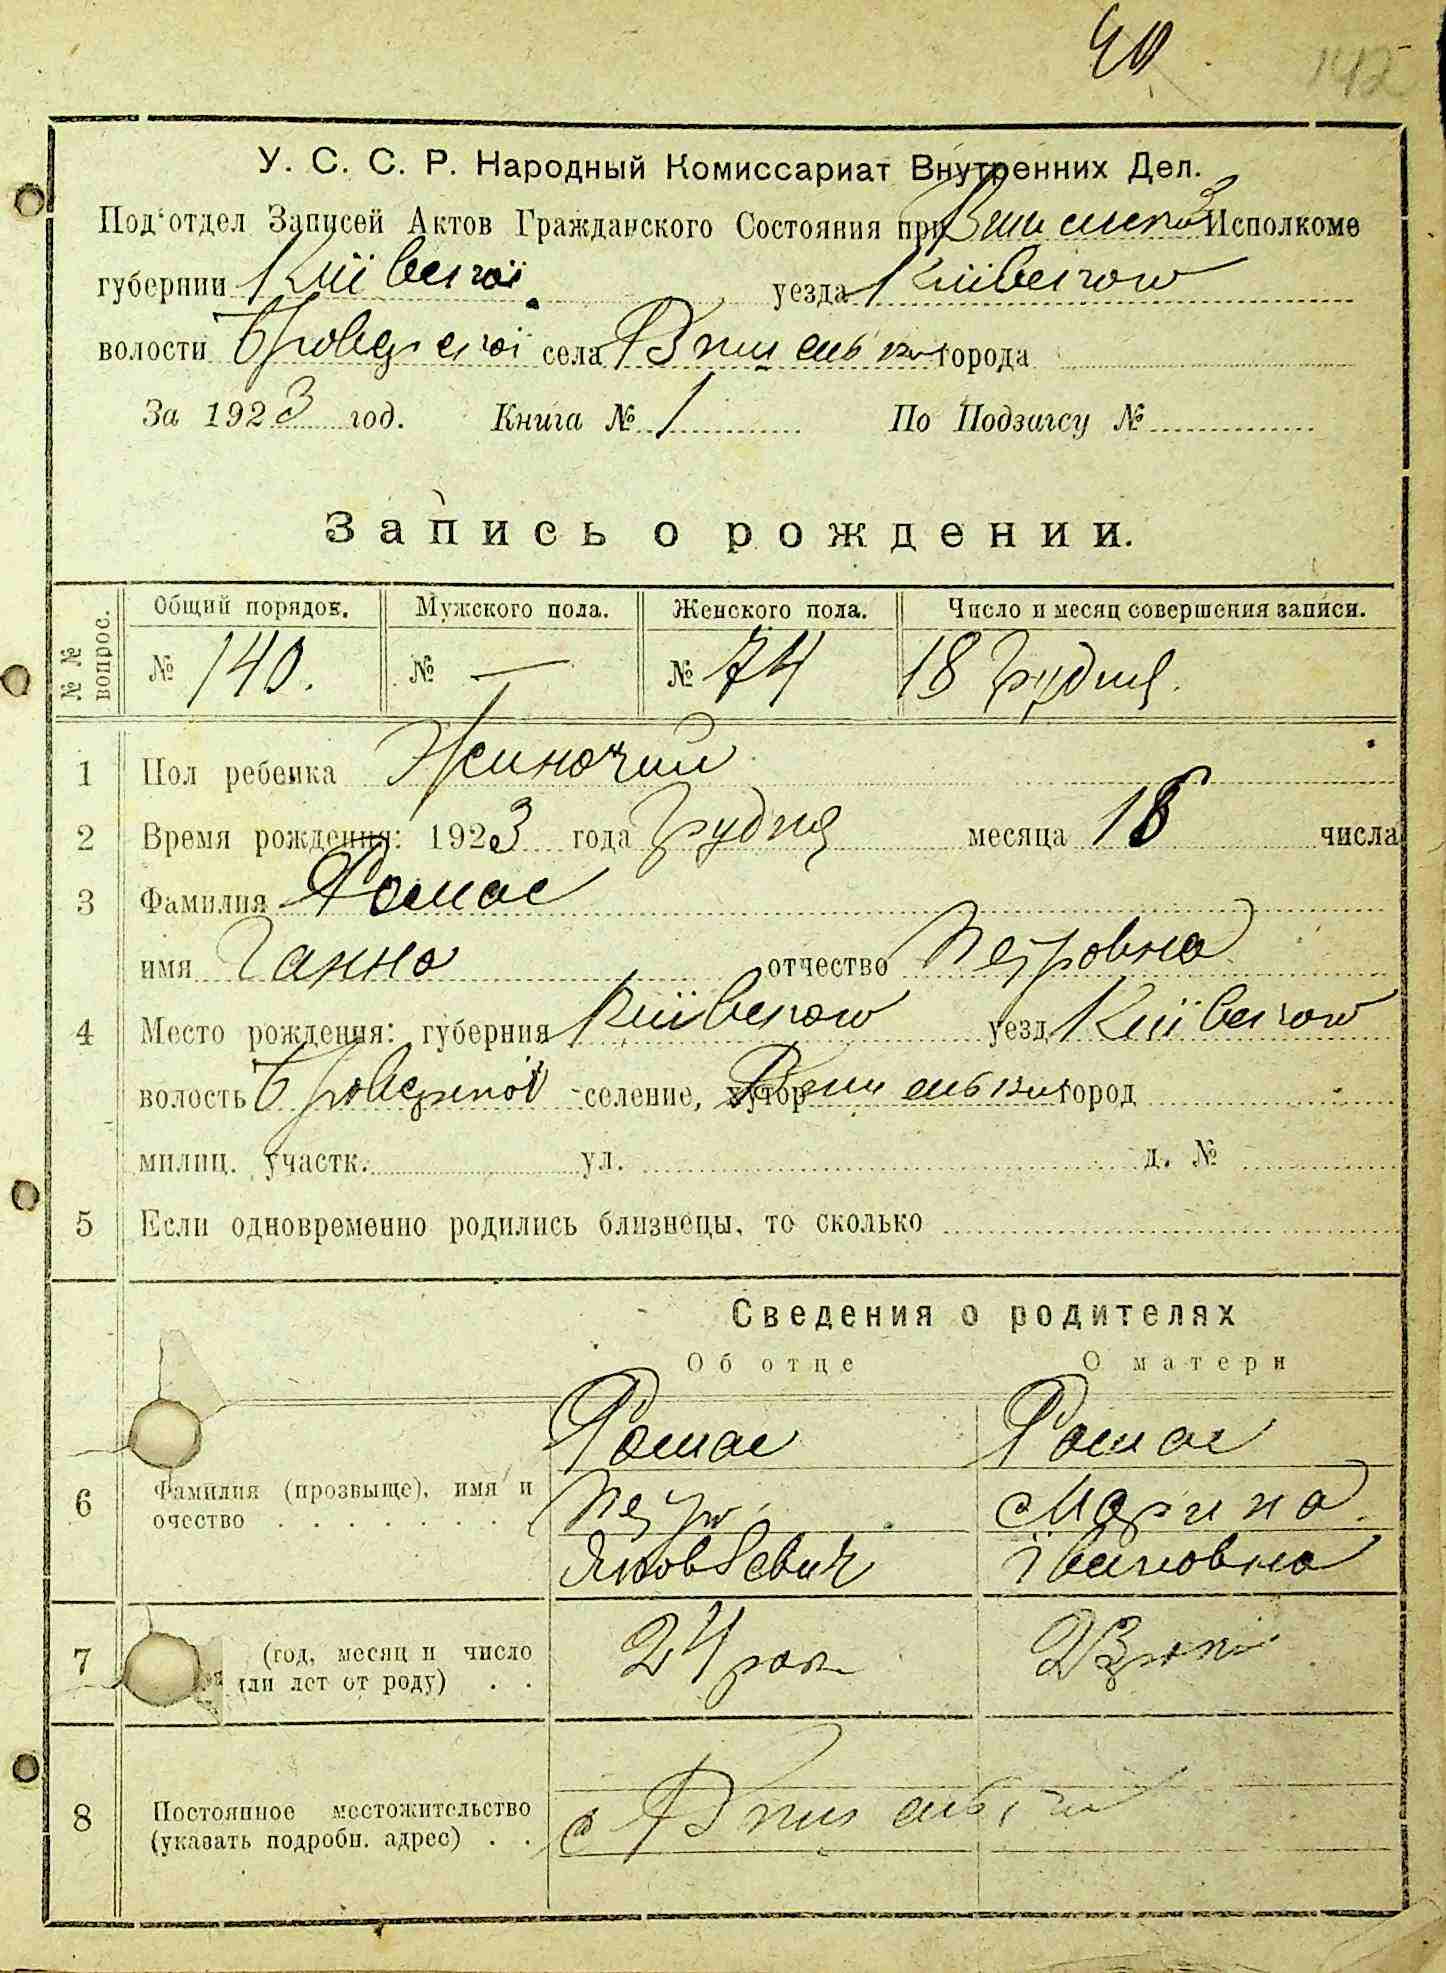 40
142
У. С. С. Р. Народный Комиссариат Внутренних Дел.
Под'отдел Записей Актов Гражданского Состояния при Исполкоме
губернии Київської уезда Київского
волости Броварської села города
За 1923 год. Книга № 1 По Подзагсу №
Запись о рождении.
№ № вопрос. Общий порядок. Мужского пола. Женского пола. Число и месяц совершения записи.
№ 140. № — № 74 18 Грудня.
1 Пол ребенка Жиночий
2 Время рождения: 1923 года Грудня месяца 18 числа
3 Фамилия Ромас
имя Ганна отчество Петровна
4 Место рождения: губерния Київского уезд Київского
волость Броварської селение, хутор город
милиц. участк. ул. д. №
5 Если одновременно родились близнецы, то сколько
Сведения о родителях
Об отце О матери
Ромас Ромас
6 Фамилия (прозвыще), имя и очество Петро Марина
Яковлевич Івановна
7 (год, месяц и число или лет от роду) 24 рок 23 роки
8 Постоянное местожительство
(указать подробн. адрес) с